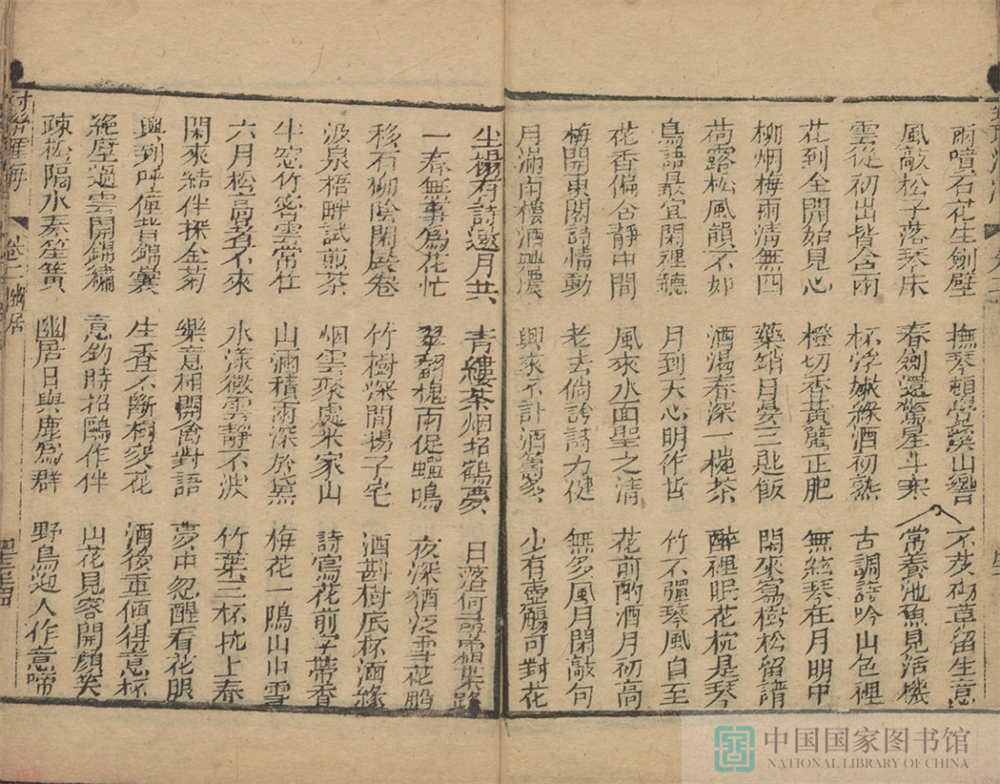 雨噴石花生劍壁 撫琴頓覺羣山響 不芟砌草留生意
風敲松子落琴床 春劍還驚星斗寒 常養池魚見活機
雲從初出皆含雨 杯浮嫩綠酒初熟 古調詩吟山色裡
花到全開始見心 橙切香黃蟹正肥 無絃琴在月明中
柳烟梅雨清無四 藥銷月憂三匙飯 閑來寫樹松留譜
荷露松風韻不如 酒濁春深一椀茶 醉裡眠花枕是琴
鳥語最宜閑裡聽 月到天心明作哲 竹不彈琴風自至
花香偏合靜中聞 風來水面聖之清 花前酌酒月初高
梅開東閣詩情動 老去倘誇詩力健 無多風月閑敲句
月滿南樓酒興濃 興來不計酒籌多 少有壺觴可對花
坐榻有詩邀月共 青縷茶烟招鶴夢 日落何
一春無事為花忙 翠翻槐雨促蟬鳴 夜深猶泛雪花
移石柳陰閑展卷 竹樹深間揚子宅 酒斟樹底杯涵綠
汲泉梧畔試煎茶 烟雲聚處米家山 詩寫花前字帶香
半窓竹密雲常在 山滿積雨深於黛 梅花一隖山中雪
六月松高暑不來 水漾微雲靜不波 竹葉三杯枕上春
閑來結伴探金菊 樂意相關禽對語 夢中忽醒看花眼
興到呼僮背錦囊 生香不斷樹交花 酒後重傾得意杯
絕壁過雲開錦繡 意釣時招鷗作伴 山花見客開顏笑
疎松隔水奏笙簧 幽居日與鹿為群 野鳥迎人作意啼
卷二 幽居
中国国家图书馆
NATIONAL LIBRARY OF CHINA